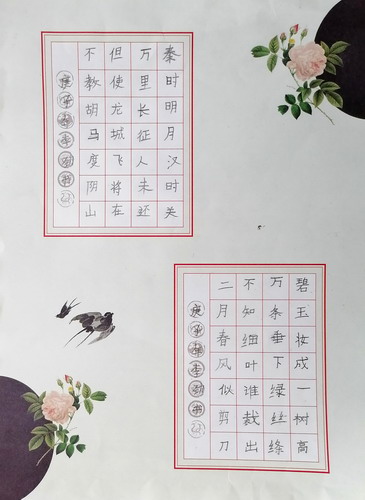 秦时明月汉时关
万里长征人未还
但使龙城飞将在
不教胡马度阴山
庚子
碧玉妆成一树高
万条垂下绿丝绦
不知细叶谁裁出
二月春风似剪刀
庚子